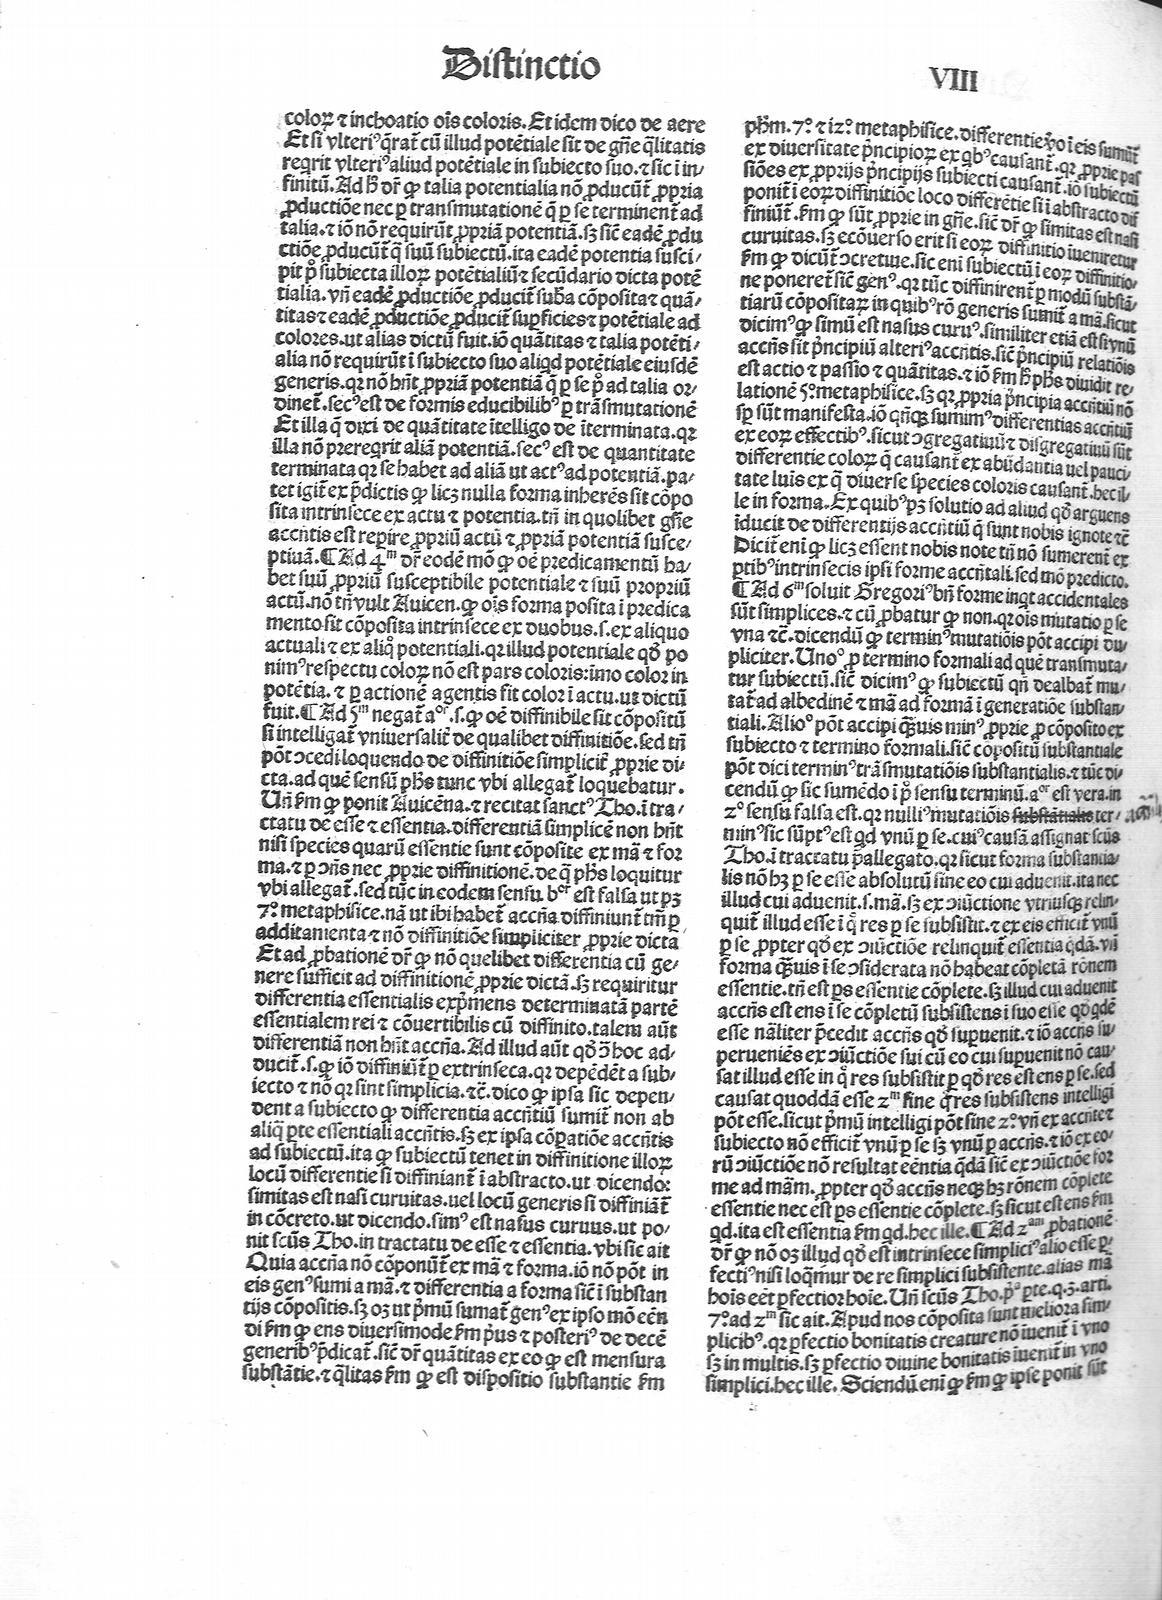 Distinctio
VIII
coloꝝ ⁊ inchoatio oĩs coloris. Et idem dico de aere
Et si vlteriꝰ q̃rat̃ cũ illud potẽtiale sit de gñe q̃litatis
reqrit vlteriꝰ aliud potẽtiale in subiecto suo. ⁊ sic ĩ in/
finitũ. Ad h̾ dr̃ ꝙ talia potentialia nõ ꝓducũt ꝓpria
ꝓductiõe nec ꝑ transmutationẽ q̃ ꝑ se terminent̃ ad
talia. ⁊ iõ nõ requirũt ꝓpriã potentiã. sꝫ sic̃ eadẽ ꝓdu
ctiõe ꝓducũt̃ q̃ suũ subiectũ. ita eadẽ potentia susci/
pit p̾ subiecta illoꝝ potẽtialiũ ⁊ secũdario dicta potẽ
tialia. vñ eadẽ ꝓductiõe ꝓducit̃ suba cõposita ⁊ quã/
titas ⁊ eadẽ ꝓductiõe ꝓducit̃ suꝑficies ⁊ potẽtiale ad
colores. ut alias dictũ fuit. iõ quãtitas ⁊ talia potẽti/
alia nõ requirũt ĩ subiecto suo aliqd potẽtiale eiusdẽ
generis. qꝛ nõ hñt ꝓpriã potentiã q̃ ꝑ se p̾ ad talia or/
dinet̃. secꝰ est de formis educibilibꝰ ꝑ trãsmutationẽ
Et illa q̃ dixi de quãtitate ĩtelligo de ĩterminata. qꝛ
illa nõ p̃reqrit aliã potentiã. secꝰ est de quantitate
terminata qꝛ se habet ad aliã ut actꝰ ad potentiã. pa/
tet igit̃ ex p̃dictis ꝙ licꝫ nulla forma inherẽs sit cõpo
sita intrinsece ex actu ⁊ potentia. tñ in quolibet gñe
accñtis est reꝑire ꝓpriũ actũ ⁊ ꝓpriã potentiã susce/
ptiuã. ¶ Ad 4ᵐ dr̃ eodẽ mõ ꝙ oẽ predicamentũ ha/
bet suũ ꝓpriũ susceptibile potentiale ⁊ suũ propriũ
actũ. nõ tñ vult Auicen. ꝙ oĩs forma posita ĩ predica
mento sit cõposita intrinsece ex duobus. s. ex aliquo
actuali ⁊ ex aliq̾ potentiali. qꝛ illud potentiale qđ po
nimꝰ respectu coloꝝ nõ est pars coloris: imo color in
potẽtia. ⁊ ꝑ actionẽ agentis fit color ĩ actu. ut dictũ
fuit. ¶ Ad 5ᵐ negat̃ aᵒʳ. s. ꝙ oẽ diffinibile sit cõpositũ
si intelligat̃ vniuersalit̃ de qualibet diffinitiõe. sed tñ
põt ɔcedi loquendo de diffinitiõe simplicit̃ ꝓprie di/
cta. ad quẽ sensũ phs tunc vbi allegat̃ loquebatur.
Uñ fm ꝙ ponit Auicẽna. ⁊ recitat sanctꝰ Tho. ĩ tra/
ctatu de esse ⁊ essentia. differentiã simplicẽ non hñt
nisi species quarũ essentie sunt cõposite ex mã ⁊ for
ma. ⁊ ꝑ ɔñs nec ꝓprie diffinitionẽ. de q̃ phs loquitur
vbi allegat̃. sed tũc in eodem sensu bᵒʳ est falsa ut pꝫ
7ᵒ metaphisice. nã ut ibi habet̃ accña diffiniunt̃ tñ ꝑ
additamenta ⁊ nõ diffinitiõe simpliciter ꝓprie dicta
Et ad ꝓbationẽ dr̃ ꝙ nõ quelibet differentia cũ ge/
nere sufficit ad diffinitionẽ ꝓprie dictã. sꝫ requiritur
differentia essentialis exp̃mens determinatã partẽ
essentialem rei ⁊ cõuertibilis cũ diffinito. talem aũt
differentiã non hñt accña. Ad illud aũt qđ ɔ̃ hoc ad/
ducit̃. s. ꝙ iõ diffiniũt̃ ꝑ extrinseca. qꝛ depẽdẽt a sub/
iecto ⁊ nõ qꝛ sint simplicia. ⁊c̃. dico ꝙ ipsa sic depen/
dent a subiecto ꝙ differentia accñtiũ sumit̃ non ab
aliq̃ ꝑte essentiali accñtis. sꝫ ex ipsa cõꝑatiõe accñtis
ad subiectũ. ita ꝙ subiectũ tenet in diffinitione illoꝝ
locũ differentie si diffiniant̃ ĩ abstracto. ut dicendo:
simitas est nasi curuitas. uel locũ generis si diffiniãt̃
in cõcreto. ut dicendo. simꝰ est nasus curuus. ut po/
nit scũs Tho. in tractatu de esse ⁊ essentia. vbi sic ait
Quia accña nõ cõponũt̃ ex mã ⁊ forma. iõ nõ põt in
eis genꝰ sumi a mã. ⁊ differentia a forma sic̃ ĩ substan
tijs cõpositis. sꝫ oꝫ ut p̃mũ sumat̃ genꝰ ex ipso mõ eẽn
di fm ꝙ ens diuersimode fm p̃us ⁊ posteriꝰ de decẽ
generibꝰ p̃dicat̃. sic̃ dr̃ quãtitas ex eo ꝙ est mensura
substãtie. ⁊ q̃litas fm ꝙ est dispositio substantie fm
phm. 7ᵒ. ⁊ 12ᵒ metaphisice. differentie v̾o ĩ eis sumũt̃
ex diuersitate p̃ncipioꝝ ex qbꝰ causant̃. qꝛ ꝓprie pas
siões ex ꝓprijs p̃ncipijs subiecti causant̃. iõ subiectũ
ponit̃ ĩ eoꝝ diffinitiõe loco differẽtie si ĩ abstracto dif
finiũt̃. fm ꝙ sũt ꝓprie in gñe. sic̃ dr̃ ꝙ simitas est nasi
curuitas. sꝫ ecõuerso erit si eoꝝ diffinitio ĩueniretur
fm ꝙ dicũt̃ ɔcretiue. sic eni subiectũ ĩ eoꝝ diffinitio/
ne poneret̃ sic̃ genꝰ. qꝛ tũc diffinirent̃ ꝑ modũ substã/
tiarũ cõpositaꝝ in quibꝰ rõ generis sumit̃ a mã. sicut
dicimꝰ ꝙ simũ est nasus curuꝰ. similiter etiã est si vnũ
accñs sit p̃ncipiũ alteriꝰ accñtis. sic̃ p̃ncipiũ relatiõis
est actio ⁊ passio ⁊ quãtitas. ⁊ iõ fm h̾ phs diuidit re/
lationẽ 5ᵒ metaphisice. sꝫ qꝛ ꝓpria p̃ncipia accñtiũ nõ
sꝑ sũt manifesta. iõ qñqꝫ sumimꝰ differentias accñtiũ
ex eoꝝ effectibꝰ. sicut ɔgregatiuũ ⁊ disgregatiuũ sũt
differentie coloꝝ q̃ causant̃ ex abũdantia uel pauci/
tate luĩs ex q̃ diuerse species coloris causant̃. hec il/
le in forma. Ex quibꝰ pꝫ solutio ad aliud qđ arguens
ĩducit de differentijs accñtiũ q̃ sunt nobis ignote ⁊c̃
Dicit̃ eni ꝙ licꝫ essent nobis note tñ nõ sumerent̃ ex
ꝑtibꝰ intrinsecis ipsi forme accñtali. sed mõ predicto.
¶ Ad 6ᵐ soluit Gregoriꝰ bñ forme inqt accidentales
sũt simplices. ⁊ cũ ꝓbatur ꝙ non. qꝛ ois mutatio ꝑ se
vna ⁊c̃. dicendũ ꝙ terminꝰ mutatiõis põt accipi du/
pliciter. Unoᵒ ꝑ termino formali ad quẽ transmuta/
tur subiectũ. sic̃ dicimꝰ ꝙ subiectũ qñ dealbat̃ mu/
tat̃ ad albedinẽ ⁊ mã ad formã ĩ generatiõe substan/
tiali. Alioᵒ põt accipi q̃uis minꝰ ꝓprie ꝑ cõposito ex
subiecto ⁊ termino formali. sic̃ cõpositũ substantiale
põt dici terminꝰ trãsmutatiõis substantialis. ⁊ tũc di/
cendũ ꝙ sic sumẽdo ĩ p̾ sensu terminũ. aᵒʳ est vera. in
2ᵒ sensu falsa est. qꝛ nulliꝰ mutatiõis substãtialis ter/
minꝰ sic sũptꝰ est qd vnũ ꝑ se. cuiꝰ causã assignat scũs
Tho. ĩ tractatu p̃allegato. qꝛ sicut forma substantia/
lis nõ hꝫ ꝑ se esse absolutũ sine eo cui aduenit. ita nec
illud cui aduenit. s. mã. sꝫ ex ɔiũctione vtriusqꝫ relin/
quit̃ illud esse ĩ q̾ res ꝑ se subsistit. ⁊ ex eis efficit̃ vnũ
ꝑ se ꝓpter qđ ex ɔiũctiõe relinquit̃ essentia qdã. vñ
forma q̃uis ĩ se ɔsiderata nõ habeat cõpletã rõnem
essentie. tñ est ꝑs essentie cõplete. sꝫ illud cui aduenit
accñs est ens ĩ se cõpletũ subsistens ĩ suo esse qđ qdẽ
esse nãliter p̃cedit accñs qđ suꝑuenit. ⁊ iõ accñs su/
perueniẽs ex ɔiũctiõe sui cũ eo cui suꝑuenit nõ cau/
sat illud esse in q̾ res subsistit ꝑ qđ res est ens ꝑ se. sed
causat quoddã esse 2ᵐ sine q̾ res subsistens intelligi
põt esse. sicut p̃mũ intelligi põt sine 2ᵒ. vñ ex accñte ⁊
subiecto nõ efficit̃ vnũ ꝑ se sꝫ vnũ ꝑ accñs. ⁊ iõ ex eo/
rũ ɔiũctiõe nõ resultat eẽntia q̃dã sic̃ ex ɔiũctiõe for
me ad mãm. ꝓpter qđ accñs neqꝫ hꝫ rõnem cõplete
essentie nec est ꝑs essentie cõplete. sꝫ sicut est ens fm
qd. ita est essentia fm qd. hec ille. ¶ Ad 2ᵃᵐ ꝓbationẽ
dr̃ ꝙ nõ oꝫ illud qđ est intrinsece simpliciꝰ alio esse ꝑ/
fectiꝰ nisi loqm̃ur de re simplici subsistente. alias mã
hoĩs eẽt ꝑfectior hoĩe. Uñ scũs Tho. pᵃ ꝑte. q. 3. arti.
7ᵒ. ad 2ᵐ sic ait. Apud nos cõposita sunt meliora sim/
plicibꝰ. qꝛ ꝑfectio bonitatis creature nõ ĩuenit̃ ĩ vno
sꝫ in multis. sꝫ ꝑfectio diuine bonitatis ĩuenit̃ in vno
simplici. hec ille. Sciendũ eni ꝙ fm ꝙ ipse ponit sũt